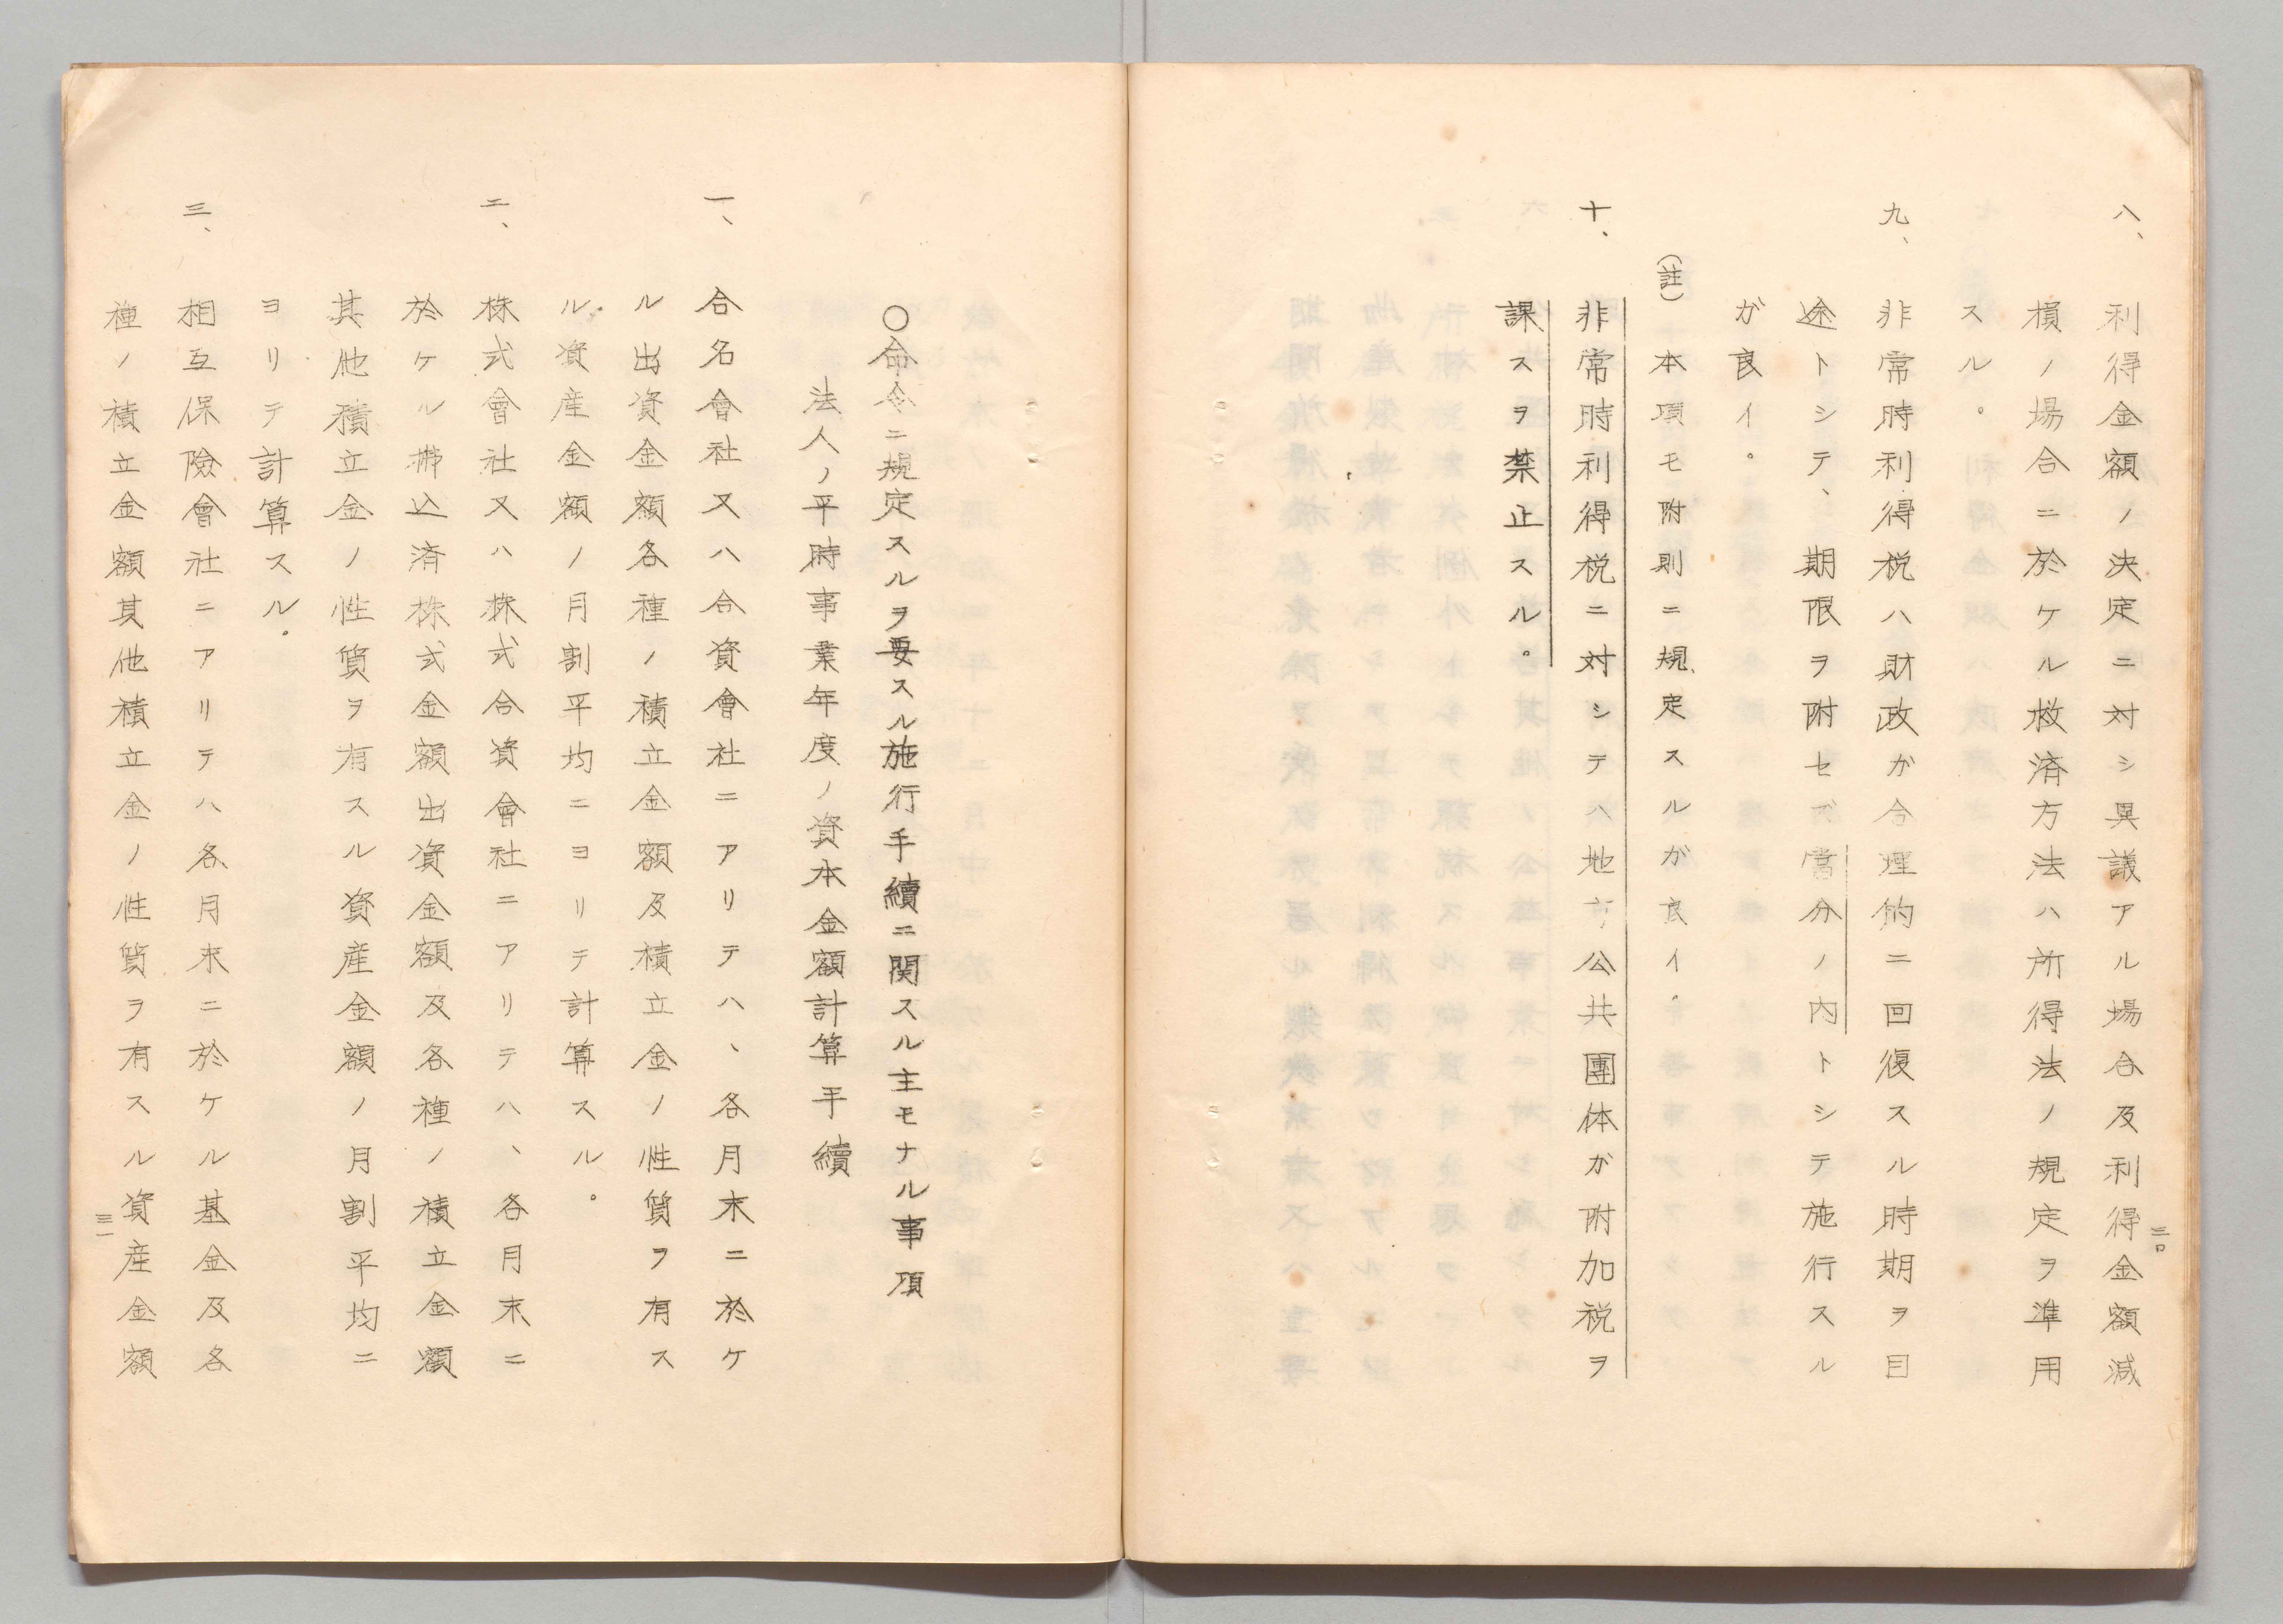 八、利得金額ノ決定ニ対シ異議アル場合及利得金額減
損ノ場合ニ於ケル救済方法ハ所得法ノ規定ヲ準用
スル。
九、非常時利得税ハ財政が合理的ニ回復スル時期ヲ目
途トシテ、期限ヲ附セズ當分ノ内トシテ施行スル
が良イ。
(註)本項モ附則ニ規定スルが良イ。
十、非常時利得税ニ対シテハ地方公共團体が附加税ヲ
課スヲ禁止スル。
三〇
〇命令ニ規定スルヲ要スル施行手續ニ関スル主モナル事項
法人ノ平時事業年度ノ資本金額計算手續
一、合名會社又ハ合資會社ニアリテハ、各月末ニ於ケ
ル出資金額各種ノ積立金額及積立金ノ性質ヲ有ス
ル資産金額ノ月割平均ニヨリテ計算スル。
二、株式會社又ハ株式合資會社ニアリテハ、各月末ニ
於ケル拂込済株式金額出資金額及各種ノ積立金額
其他積立金ノ性質ヲ有スル資産金額ノ月割平均ニ
ヨリテ計算スル。
三、相互保險會社ニアリテハ各月末ニ於ケル基金及各
種ノ積立金額其他積立金ノ性質ヲ有スル資産金額
三一